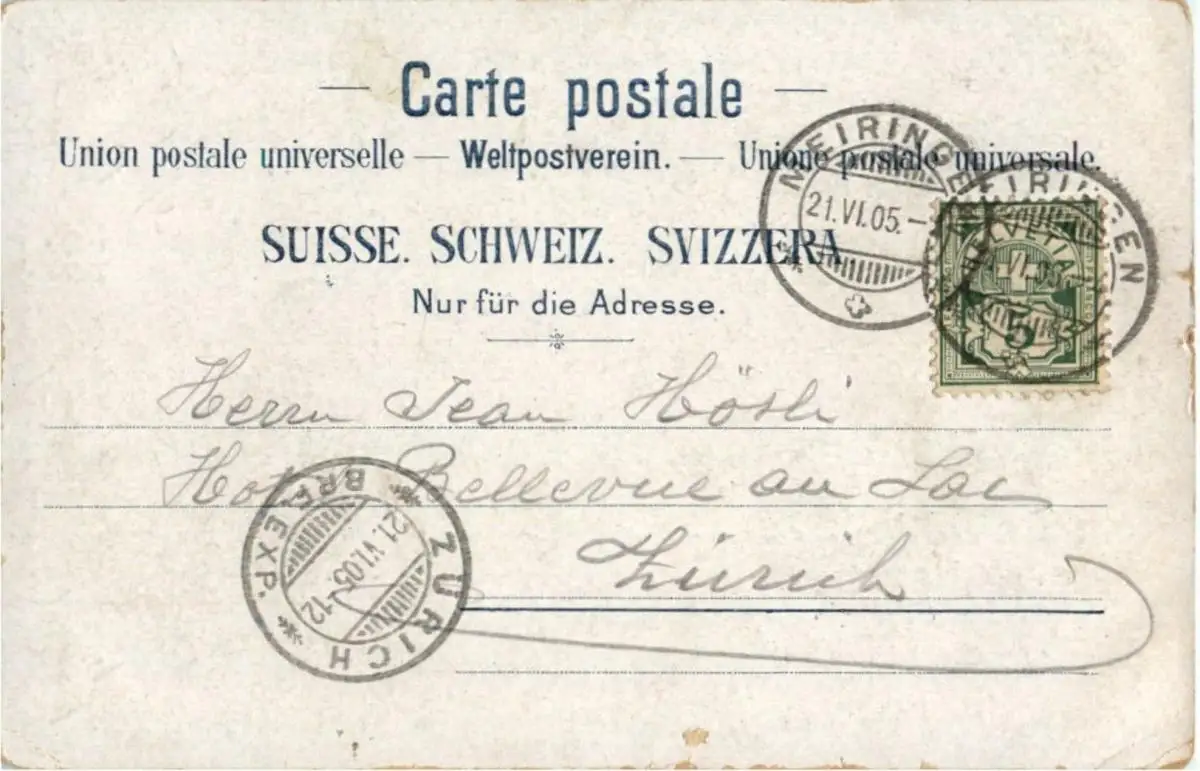 Carte postale
Union postale universelle — Weltpostverein. — Unione postale universale.
SUISSE. SCHWEIZ. SVIZZERA
Nur für die Adresse.
MEIRINGEN
21.VI.05.–
MEIRINGEN
HELVETIA
5
Herrn Jean Hösli
Hotel Bellevue au Lac
Zürich
ZÜRICH
BRF. EXP.
21.VI.05–12